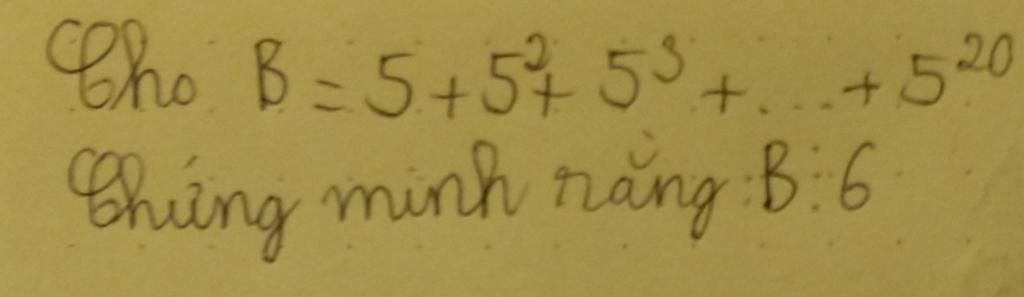 Cho B = 5 + 5² + 5³ + ... + 5²⁰
Chứng minh rằng: B ⋮ 6